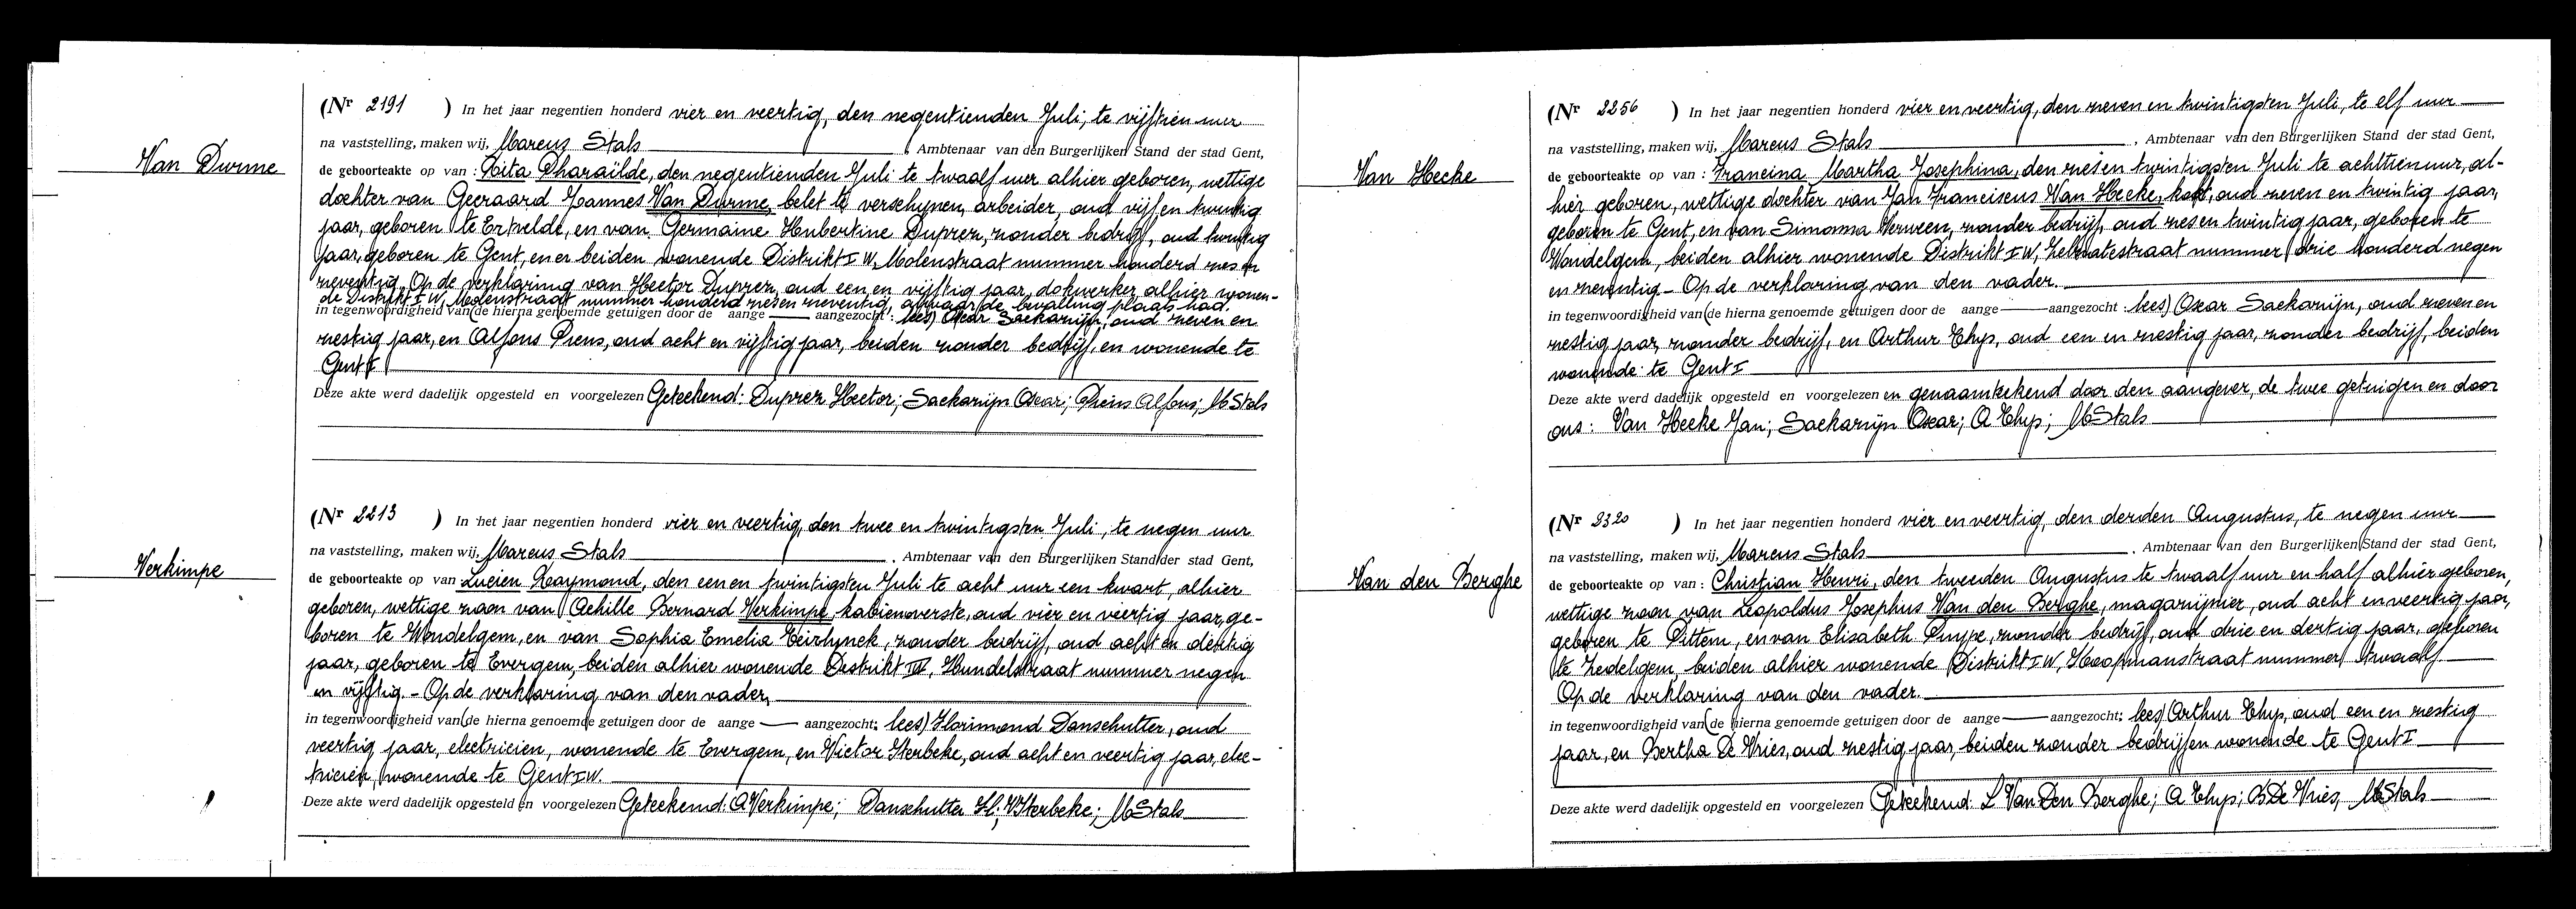 Van Durme
(Nr 2191 ) In het jaar negentien honderd vier en veertig, den negentienden Juli, te vijftien uur
na vaststelling, maken wij, Marcus Stals , Ambtenaar van den Burgerlijken Stand der stad Gent,
de geboorteakte op van : Rita Pharaïlde, den negentienden Juli te twaalf uur alhier geboren, wettige
dochter van Geeraard Joannes Van Durme, belet te verschynen, arbeider, oud vijf en twintig
jaar, geboren te Ertvelde, en van Germaine Hubertine Duprez, zonder bedrijf, oud twintig
jaar, geboren te Gent, en er beiden wonende Distrikt I W, Molenstraat nummer honderd zes en
zeventig. Op de verklaring van Hector Duprez, oud een en vijftig jaar, dokwerker, alhier wonen-
de Distrikt I W, Molenstraat nummer honderd zes en zeventig, alwaar de bevalling plaats had.
in tegenwoordigheid van (de hierna genoemde getuigen door de aange — aangezocht : lees) Oscar Saekarijn, oud zeven en
zestig jaar, en Alfons Prens, oud acht en vijftig jaar, beiden zonder bedrijf, en wonende te
Gent I
Deze akte werd dadelijk opgesteld en voorgelezen Geteekend: Duprez Hector; Saekarijn Oscar; Prens Alfons; M Stals
Verkimpe
(Nr 2213 ) In het jaar negentien honderd vier en veertig, den twee en twintigsten Juli, te negen uur
na vaststelling, maken wij, Marcus Stals , Ambtenaar van den Burgerlijken Stand der stad Gent,
de geboorteakte op van Lucien Raymond, den een en twintigsten Juli te acht uur een kwart, alhier
geboren, wettige zoon van Achille Bernard Verkimpe, kabienoverste, oud vier en veertig jaar, ge-
boren te Wondelgem, en van Sophia Emelia Teirlynck, zonder bedrijf, oud acht en dertig
jaar, geboren te Evergem, beiden alhier wonende Distrikt IV, Hundelstraat nummer negen
en vijftig. - Op de verklaring van den vader,
in tegenwoordigheid van (de hierna genoemde getuigen door de aange — aangezocht: lees) Florimond Danschutter, oud
veertig jaar, electricien, wonende te Evergem, en Victor Sterbeke, oud acht en veertig jaar, elec-
tricien, wonende te Gent I W.
Deze akte werd dadelijk opgesteld en voorgelezen Geteekend: A Verkimpe; Danschutter Fl; V Sterbeke; M Stals
Van Hecke
(Nr 2256 ) In het jaar negentien honderd vier en veertig, den zeven en twintigsten Juli, te elf uur
na vaststelling, maken wij, Marcus Stals , Ambtenaar van den Burgerlijken Stand der stad Gent,
de geboorteakte op van : Francina Martha Josephina, den zes en twintigsten Juli te achttien uur, al-
hier geboren, wettige dochter van Jan Franciscus Van Hecke, kok, oud zeven en twintig jaar,
geboren te Gent, en van Simonna Verween, zonder bedrijf, oud zes en twintig jaar, geboren te
Wondelgem, beiden alhier wonende Distrikt I W, Zelzatestraat nummer drie honderd negen
en zeventig. - Op de verklaring van den vader.
in tegenwoordigheid van (de hierna genoemde getuigen door de aange — aangezocht : lees) Oscar Saekarijn, oud zeven en
zestig jaar, zonder bedrijf, en Arthur Thyp, oud een en zestig jaar, zonder bedrijf, beiden
wonende te Gent I
Deze akte werd dadelijk opgesteld en voorgelezen en genaamteekend door den aangever, de twee getuigen en door
ons : Van Hecke Jan; Saekarijn Oscar; A Thyp; M Stals
Van den Berghe
(Nr 2320 ) In het jaar negentien honderd vier en veertig, den derden Augustus, te negen uur
na vaststelling, maken wij, Marcus Stals , Ambtenaar van den Burgerlijken Stand der stad Gent,
de geboorteakte op van : Christian Henri, den tweeden Augustus te twaalf uur en half alhier geboren,
wettige zoon van Leopoldus Josephus Van den Berghe, magazijnier, oud acht en veertig jaar,
geboren te Pittem, en van Elisabeth Puype, zonder bedrijf, oud drie en dertig jaar, geboren
te Zedelgem, beiden alhier wonende Distrikt I W, Koopmanstraat nummer twaalf.
Op de verklaring van den vader.
in tegenwoordigheid van (de hierna genoemde getuigen door de aange — aangezocht: lees) Arthur Thyp, oud een en zestig
jaar, en Bertha De Vries, oud zestig jaar, beiden zonder bedrijf en wonende te Gent I
Deze akte werd dadelijk opgesteld en voorgelezen Geteekend: L Van Den Berghe; A Thyp; B De Vries, M Stals